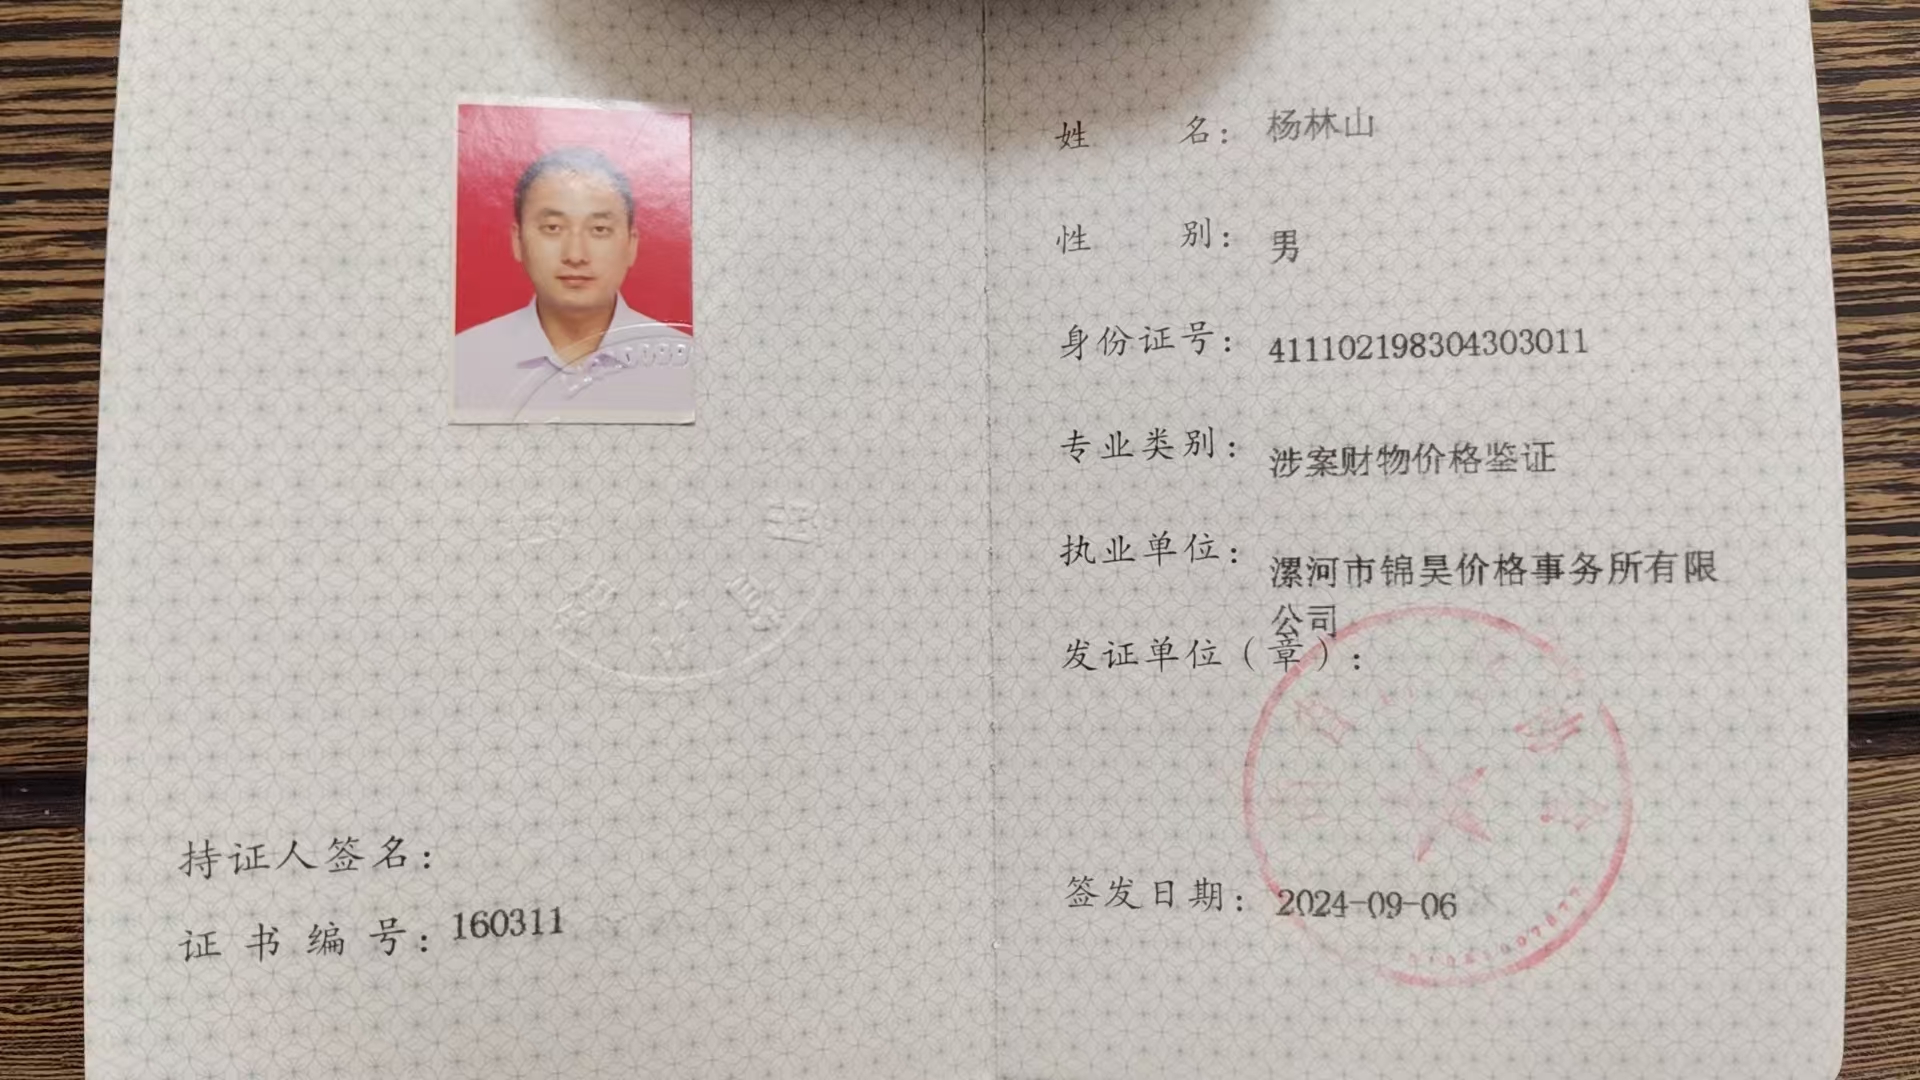 持证人签名：
证书编号：160311
姓名：杨林山
性别：男
身份证号：411102198304303011
专业类别：涉案财物价格鉴证
执业单位：漯河市锦昊价格事务所有限
公司
发证单位（章）：
签发日期：2024-09-06